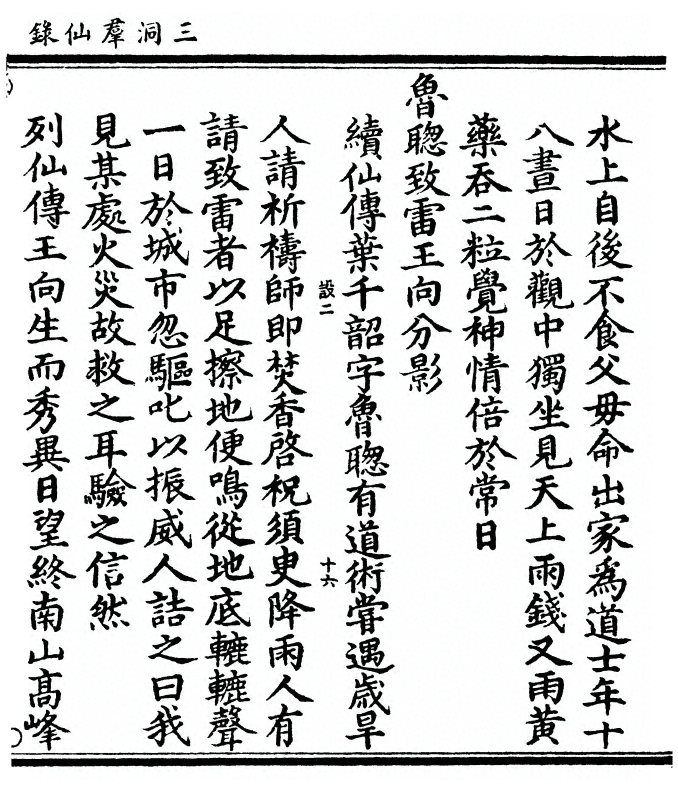 三洞羣仙錄
水上自後不食父母命出家爲道士年十
八晝日於觀中獨坐見天上雨錢又雨黄
藥吞二粒覺神情倍於常日
魯聰致雷王向分影
續仙傳葉千韶字魯聰有道術嘗遇歲旱
設二
十六
人請祈禱師即焚香啓祝須臾降雨人有
請致雷者以足擦地便鳴從地底轆轆聲
一日於城市忽驅叱以振威人詰之曰我
見某處火災故救之耳驗之信然
列仙傳王向生而秀異日望終南山高峰